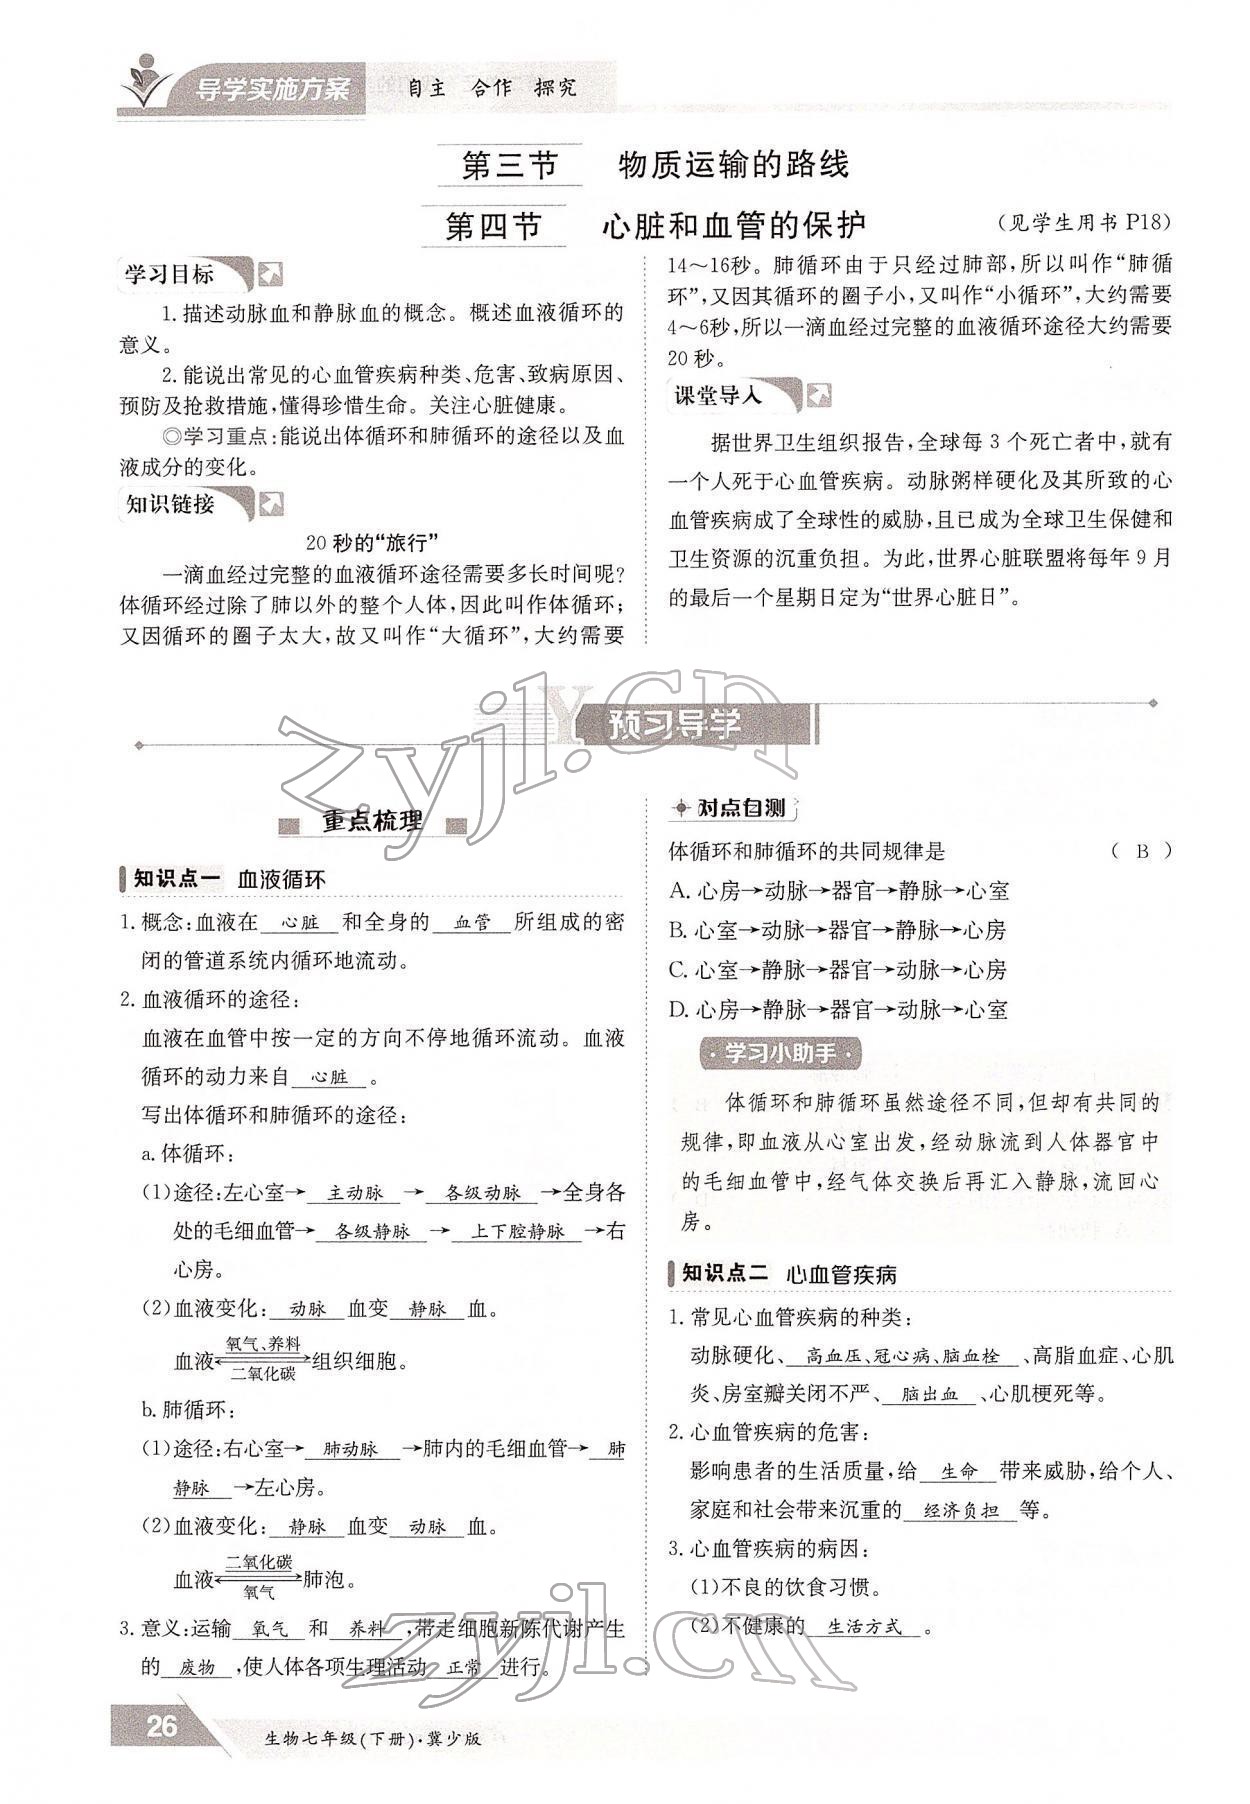 导学实施方案 自主 合作 探究
第三节 物质运输的路线
第四节 心脏和血管的保护 (见学生用书 P18)
学习目标
1.描述动脉血和静脉血的概念。概述血液循环的
意义。
2.能说出常见的心血管疾病种类、危害、致病原因、
预防及抢救措施,懂得珍惜生命。关注心脏健康。
◎学习重点:能说出体循环和肺循环的途径以及血
液成分的变化。
知识链接
20 秒的“旅行”
一滴血经过完整的血液循环途径需要多长时间呢?
体循环经过除了肺以外的整个人体,因此叫作体循环;
又因循环的圈子太大,故又叫作“大循环”,大约需要
14～16秒。肺循环由于只经过肺部,所以叫作“肺循
环”,又因其循环的圈子小,又叫作“小循环”,大约需要
4～6秒,所以一滴血经过完整的血液循环途径大约需要
20 秒。
课堂导入
据世界卫生组织报告,全球每 3 个死亡者中,就有
一个人死于心血管疾病。动脉粥样硬化及其所致的心
血管疾病成了全球性的威胁,且已成为全球卫生保健和
卫生资源的沉重负担。为此,世界心脏联盟将每年 9 月
的最后一个星期日定为“世界心脏日”。
预习导学
重点梳理
知识点一 血液循环
1. 概念:血液在 心脏 和全身的 血管 所组成的密
闭的管道系统内循环地流动。
2. 血液循环的途径:
血液在血管中按一定的方向不停地循环流动。血液
循环的动力来自 心脏 。
写出体循环和肺循环的途径:
a. 体循环:
(1)途径:左心室→ 主动脉 → 各级动脉 →全身各
处的毛细血管→ 各级静脉 → 上下腔静脉 →右
心房。
(2)血液变化: 动脉 血变 静脉 血。
氧气、养料
血液⇌组织细胞。
二氧化碳
b. 肺循环:
(1)途径:右心室→ 肺动脉 →肺内的毛细血管→ 肺
静脉 →左心房。
(2)血液变化: 静脉 血变 动脉 血。
二氧化碳
血液⇌肺泡。
氧气
3. 意义:运输 氧气 和 养料 ,带走细胞新陈代谢产生
的 废物 ,使人体各项生理活动 正常 进行。
对点自测
体循环和肺循环的共同规律是 ( B )
A. 心房→动脉→器官→静脉→心室
B. 心室→动脉→器官→静脉→心房
C. 心室→静脉→器官→动脉→心房
D. 心房→静脉→器官→动脉→心室
·学习小助手·
体循环和肺循环虽然途径不同,但却有共同的
规律,即血液从心室出发,经动脉流到人体器官中
的毛细血管中,经气体交换后再汇入静脉,流回心
房。
知识点二 心血管疾病
1. 常见心血管疾病的种类:
动脉硬化、 高血压、冠心病、脑血栓 、高脂血症、心肌
炎、房室瓣关闭不严、 脑出血 、心肌梗死等。
2. 心血管疾病的危害:
影响患者的生活质量,给 生命 带来威胁,给个人、
家庭和社会带来沉重的 经济负担 等。
3. 心血管疾病的病因:
(1)不良的饮食习惯。
(2)不健康的 生活方式 。
26 生物七年级(下册)·冀少版
zyjl.cn
zyjl.cn